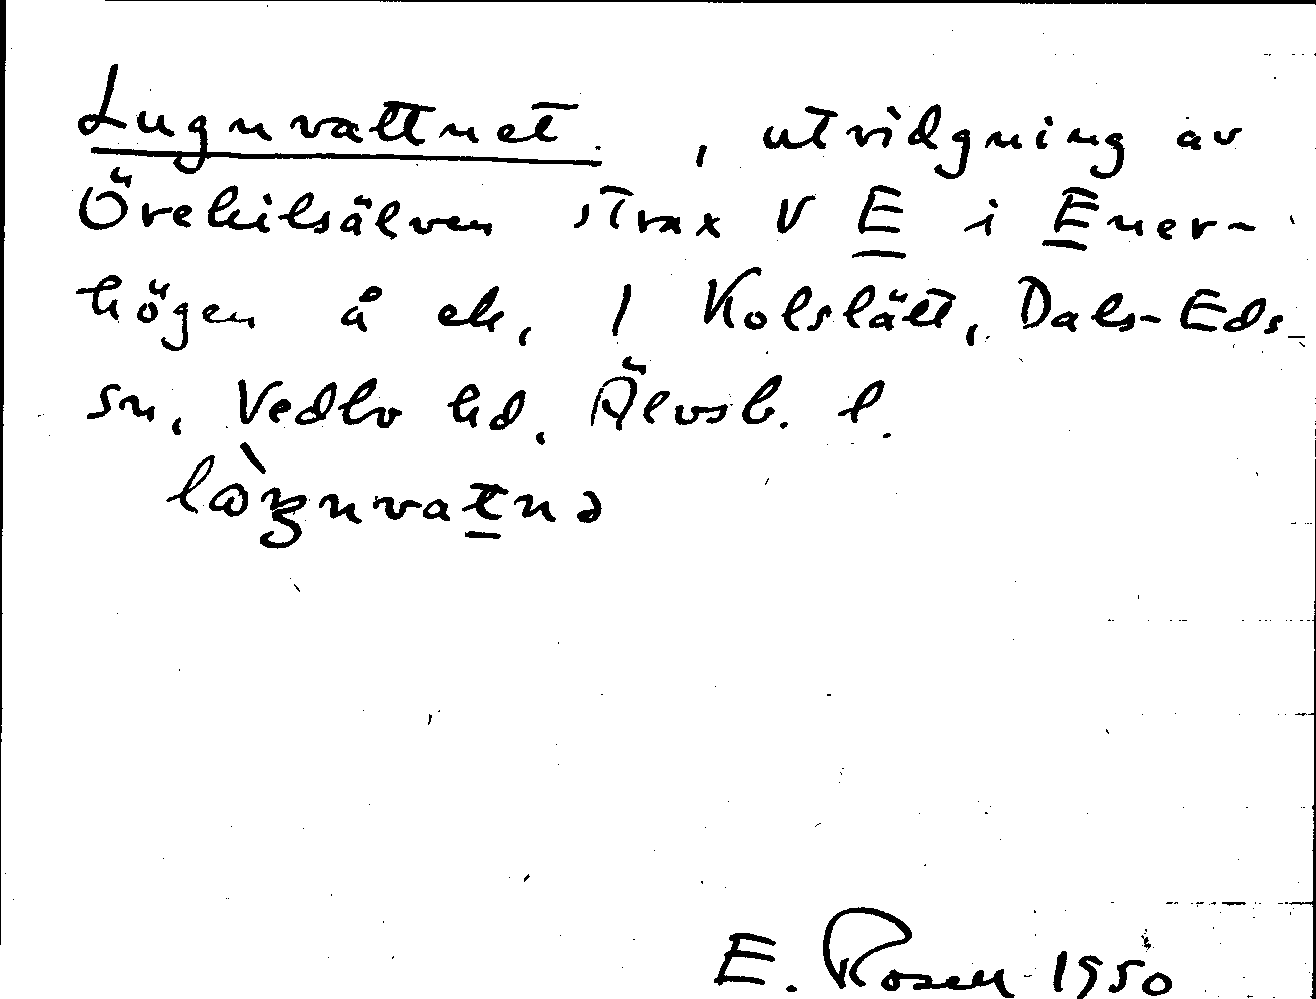 Lugnvattnet, utvidgning av
Örekilsälven strax V E i Ener-
högen å ek, 1 Kolslätt, Dals-Eds
sn, Vedbo hd, Älvsb. l.
lòꞷgnvatnə
E. Rosell 1950